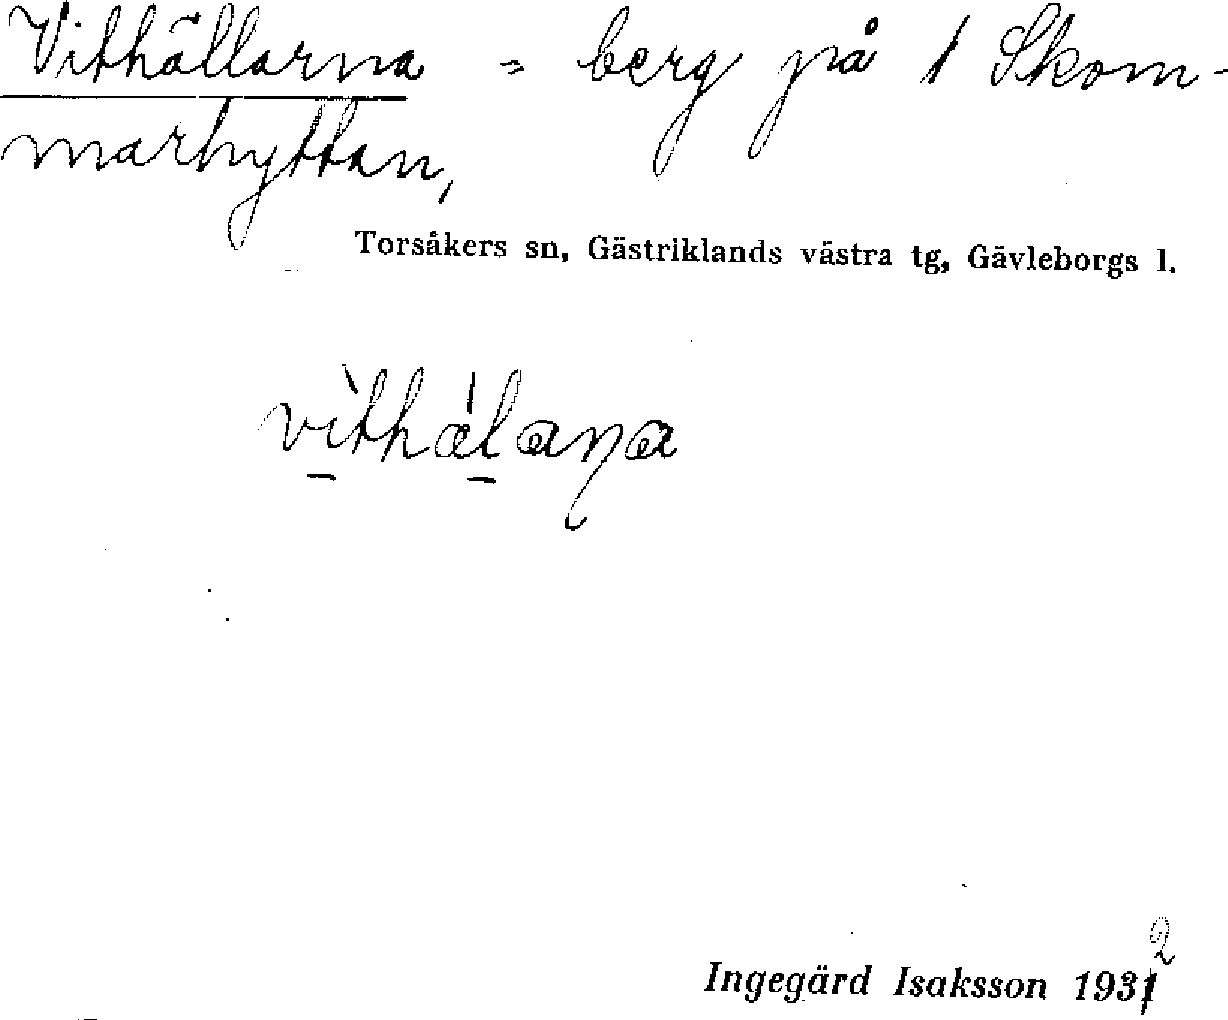 Vithällarna = berg på 1 Skom-
marhyttan,
Torsåkers sn, Gästriklands västra tg, Gävleborgs l.
vìthǽlaṇa
Ingegärd Isaksson 1932